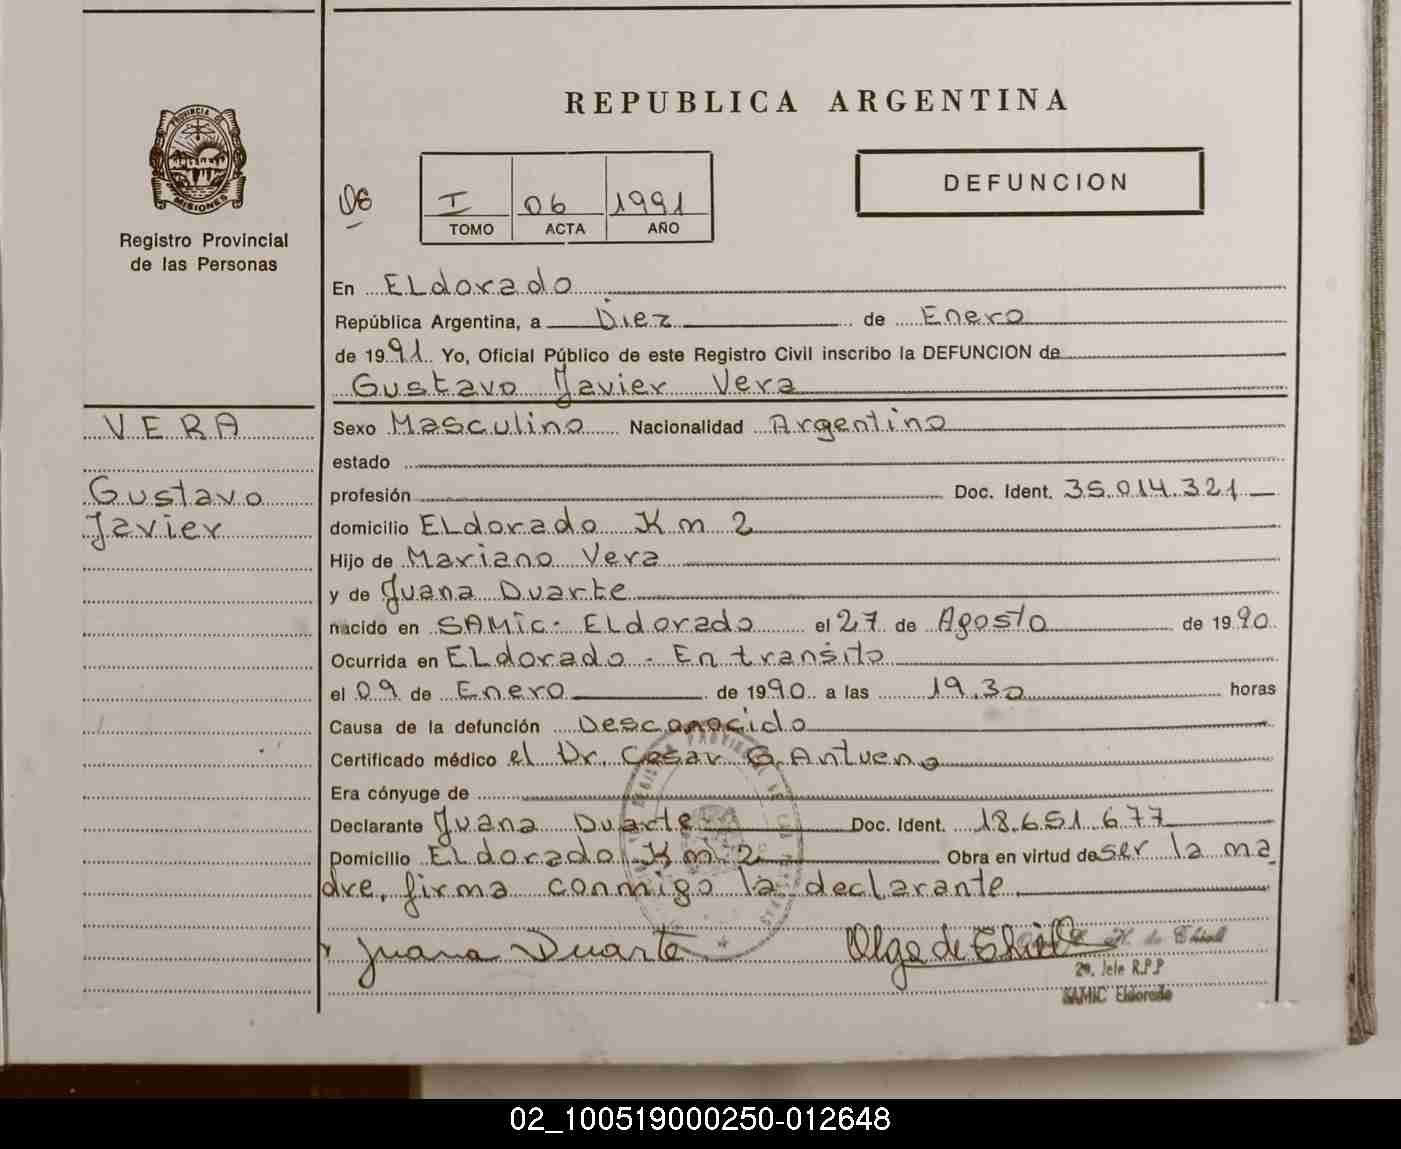 REPUBLICA ARGENTINA
PROVINCIA DE
MISIONES
Registro Provincial
de las Personas
06
I 06 1991
TOMO ACTA AÑO
DEFUNCION
En ELdorado
República Argentina, a Diez de Enero
de 1991. Yo, Oficial Público de este Registro Civil inscribo la DEFUNCION de
Gustavo Javier Vera
VERA
Gustavo
Javier
Sexo Masculino Nacionalidad Argentino
estado
profesión Doc. Ident. 35.014.321
domicilio ELdorado Km 2
Hijo de Mariano Vera
y de Juana Duarte
nacido en SAMic- ELdorado el 27 de Agosto de 1990.
Ocurrida en ELdorado - En transito
el 09 de Enero de 1990 a las 19.30 horas
Causa de la defunción Desconocido
Certificado médico el Dr. Cesar G. Antueno
Era cónyuge de
Declarante Juana Duarte Doc. Ident. 18.651.677
Domicilio ELdorado Km 2 Obra en virtud de ser la ma
dre, firma conmigo la declarante.
Juana Duarte
Olga de Thiell
2º. Jefe R.P.P
SAMIC Eldorado
02_100519000250-012648